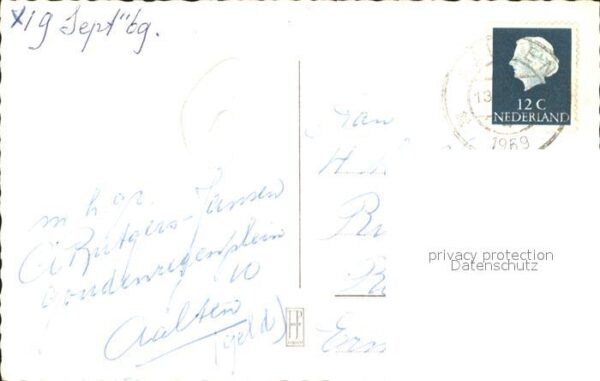 x19 Sept "69.
12 C
NEDERLAND
1969
Aan
m h gr.
A Rutgers-Jansen
Goudenregenplein
10
Aalten
(geld)
privacy protection
Datenschutz